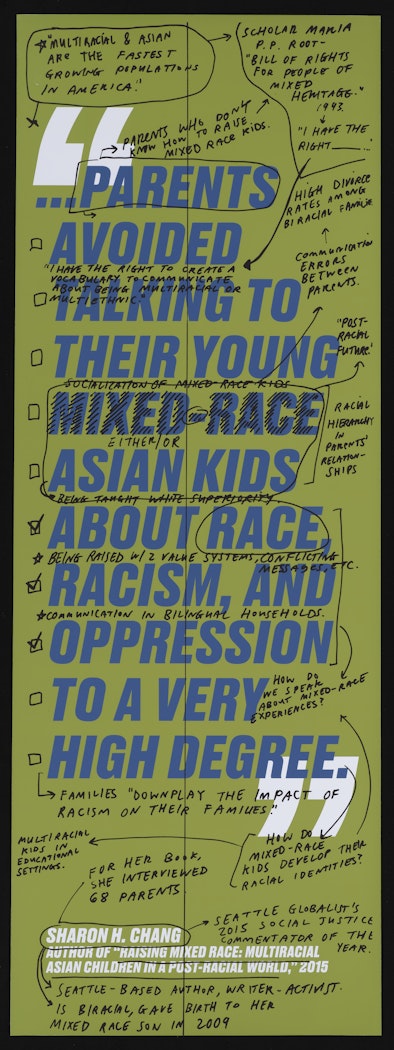 ☆"MULTIRACIAL & ASIAN
ARE THE FASTEST
GROWING POPULATIONS
IN AMERICA."
SCHOLAR MARIA
P.P. ROOT-
"BILL OF RIGHTS
FOR PEOPLE OF
MIXED
HERITAGE."
1993
"I HAVE THE
RIGHT
PARENTS WHO DON'T
KNOW HOW TO RAISE
MIXED RACE KIDS.
“
...PARENTS
HIGH DIVORCE
RATES AMONG
BIRACIAL FAMILIE
AVOIDED
"I HAVE THE RIGHT TO CREATE A
VOCABULARY TO COMMUNICATE
ABOUT BEING MULTIRACIAL OR
MULTIETHNIC."
COMMUNICATION
ERRORS
BETWEEN
PARENTS.
TALKING TO
THEIR YOUNG
"POST-
RACIAL
FUTURE."
SOCIALIZATION OF MIXED RACE KIDS
MIXED-RACE
EITHER/OR
RACIAL
HIERARCHY
IN
PARENTS'
RELATION-
SHIPS
ASIAN KIDS
BEING TAUGHT WHITE SUPERIORITY
ABOUT RACE,
☆ BEING RAISED W/ 2 VALUE SYSTEMS, CONFLICTING
MESSAGES, ETC.
RACISM, AND
☆COMMUNICATION IN BILINGUAL HOUSEHOLDS.
OPPRESSION
HOW DO
WE SPEAK
ABOUT MIXED-RACE
EXPERIENCES?
TO A VERY
HIGH DEGREE.
”
FAMILIES "DOWNPLAY THE IMPACT OF
RACISM ON THEIR FAMILIES."
MULTIRACIAL
KIDS IN
EDUCATIONAL
SETTINGS.
HOW DO
MIXED-RACE
KIDS DEVELOP THEIR
RACIAL IDENTITIES?
FOR HER BOOK,
SHE INTERVIEWED
68 PARENTS
SEATTLE GLOBALIST'S
2015 SOCIAL JUSTICE
COMMENTATOR OF THE
YEAR.
SHARON H. CHANG
AUTHOR OF "RAISING MIXED RACE: MULTIRACIAL
ASIAN CHILDREN IN A POST-RACIAL WORLD," 2015
SEATTLE-BASED AUTHOR, WRITER-ACTIVIST.
IS BIRACIAL, GAVE BIRTH TO HER
MIXED RACE SON IN 2009